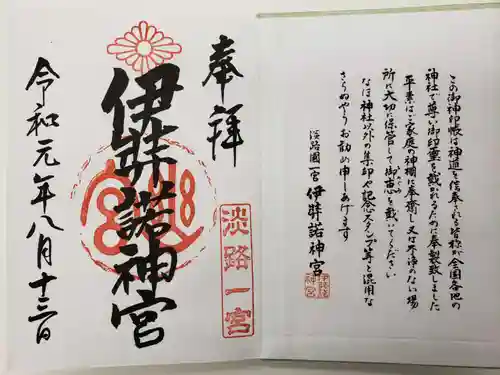 この御神印帳は神道を信奉される皆様が全国各地の
神社で尊い御印璽を戴かれるために奉製致しました
平素はご家庭の神棚に奉齋し又は不浄のない場
所に大切に保管して御恵みを戴いてください
なほ神社以外の集印や記念スタンプ等と混用な
さらぬやうお勧め申しあげます
淡路國一宮 伊弉諾神宮
奉拝
淡路一宮
伊弉諾神宮
令和元年八月十三日